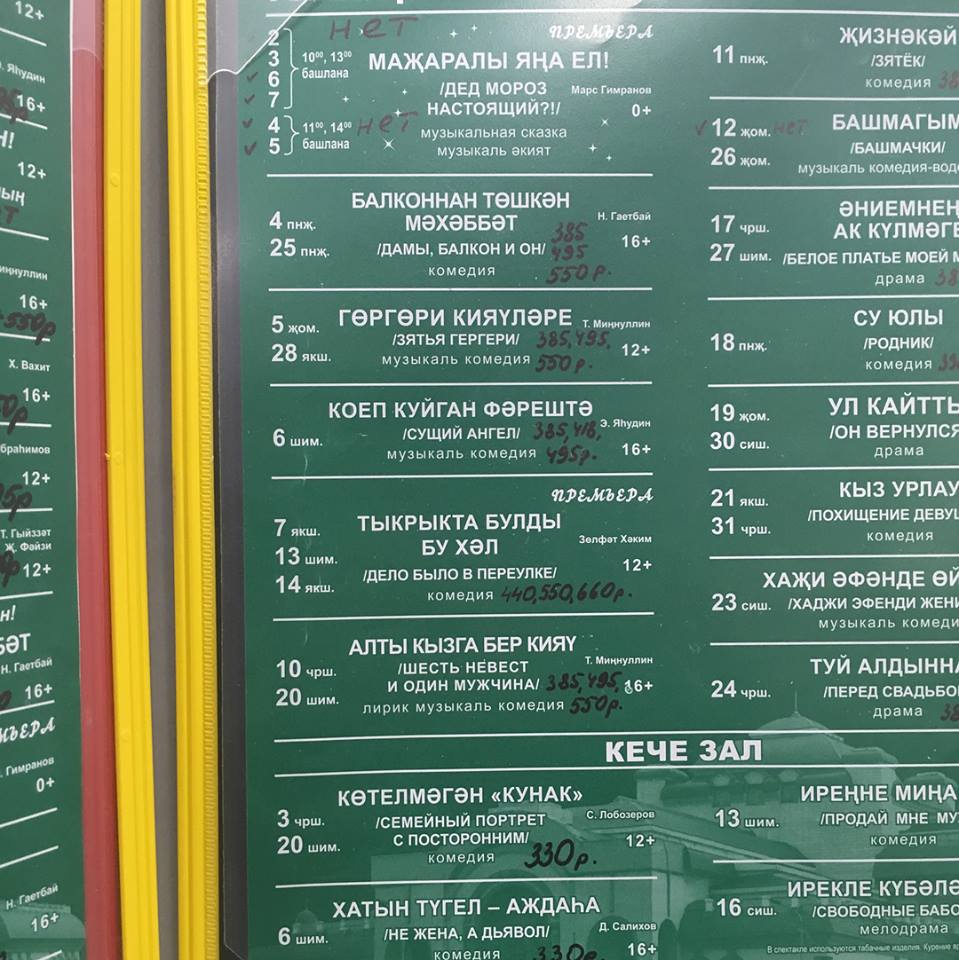 12+
Э. Яһудин
16+
Н!
12+
16+
Х. Вахит
16+
12+
Т. Гыйззәт
Җ. Фәйзи
12+
Н. Гаетбай
16+
Гимранов
0+
Н. Гаетбай
16+
нет
ПРЕМЬЕРА
2
3
6
7
10⁰⁰, 13⁰⁰
башлана
МАҖАРАЛЫ ЯҢА ЕЛ!
/ДЕД МОРОЗ
НАСТОЯЩИЙ?!/
Марс Гимранов
0+
4
5
11⁰⁰, 14⁰⁰
башлана
нет
музыкальная сказка
музыкаль әкият
4 пнҗ.
25 пнҗ.
БАЛКОННАН ТӨШКӘН
МӘХӘББӘТ
/ДАМЫ, БАЛКОН И ОН/
комедия
Н. Гаетбай
16+
385
495
550 р.
5 җом.
28 якш.
ГӨРГӨРИ КИЯҮЛӘРЕ
/ЗЯТЬЯ ГЕРГЕРИ/
музыкаль комедия
Т. Миңнуллин
12+
385, 495,
550 р.
6 шим.
КОЕП КУЙГАН ФӘРЕШТӘ
/СУЩИЙ АНГЕЛ/
музыкаль комедия
Э. Яһудин
16+
385, 418,
495р.
ПРЕМЬЕРА
7 якш.
13 шим.
14 якш.
ТЫКРЫКТА БУЛДЫ
БУ ХӘЛ
/ДЕЛО БЫЛО В ПЕРЕУЛКЕ/
комедия 440,550,660р.
Зөлфәт Хәким
12+
10 чрш.
20 шим.
АЛТЫ КЫЗГА БЕР КИЯҮ
/ШЕСТЬ НЕВЕСТ
И ОДИН МУЖЧИНА/
лирик музыкаль комедия
Т. Миңнуллин
16+
385, 495,
550р.
КЕЧЕ ЗАЛ
3 чрш.
20 шим.
КӨТЕЛМӘГӘН «КУНАК»
/СЕМЕЙНЫЙ ПОРТРЕТ
С ПОСТОРОННИМ/
комедия
С. Лобозеров
12+
330р.
6 шим.
ХАТЫН ТҮГЕЛ – АЖДАҺА
/НЕ ЖЕНА, А ДЬЯВОЛ/
комедия
Д. Салихов
16+
330р.
11 пнҗ.
ҖИЗНӘКӘЙ
/ЗЯТЁК/
комедия
12 җом. нет
26 җом.
БАШМАГЫМ
/БАШМАЧКИ/
музыкаль комедия-вод
17 чрш.
27 шим.
ӘНИЕМНЕҢ
АК КҮЛМӘГЕ
/БЕЛОЕ ПЛАТЬЕ МОЕЙ М
драма
18 пнҗ.
СУ ЮЛЫ
/РОДНИК/
комедия
19 җом.
30 сиш.
УЛ КАЙТТЫ
/ОН ВЕРНУЛСЯ
драма
21 якш.
31 чрш.
КЫЗ УРЛАУ
/ПОХИЩЕНИЕ ДЕВУШ
комедия
23 сиш.
ХАҖИ ӘФӘНДЕ ӨЙ
/ХАДЖИ ЭФЕНДИ ЖЕНИ
музыкаль комеди
24 чрш.
ТУЙ АЛДЫННА
/ПЕРЕД СВАДЬБО
драма
13 шим.
ИРЕҢНЕ МИҢА
/ПРОДАЙ МНЕ МУ
комедия
16 сиш.
ИРЕКЛЕ КҮБӘЛӘ
/СВОБОДНЫЕ БАБО
мелодрама
В спектакле используются табачные изделия. Курение